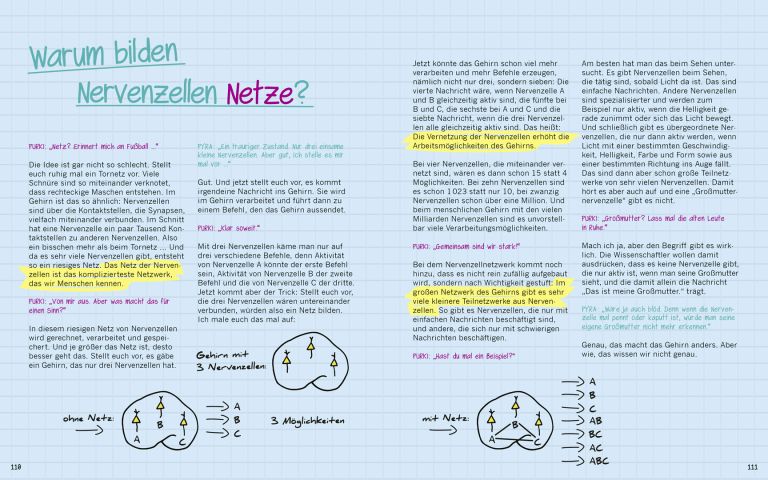 Warum bilden
Nervenzellen Netze?
PURKI: „Netz? Erinnert mich an Fußball ..."
Die Idee ist gar nicht so schlecht. Stellt
euch ruhig mal ein Tornetz vor. Viele
Schnüre sind so miteinander verknotet,
dass rechteckige Maschen entstehen. Im
Gehirn ist das so ähnlich: Nervenzellen
sind über die Kontaktstellen, die Synapsen,
vielfach miteinander verbunden. Im Schnitt
hat eine Nervenzelle ein paar Tausend Kon-
taktstellen zu anderen Nervenzellen. Also
ein bisschen mehr als beim Tornetz ... Und
da es sehr viele Nervenzellen gibt, entsteht
so ein riesiges Netz. Das Netz der Nerven-
zellen ist das komplizierteste Netzwerk,
das wir Menschen kennen.
PURKI: „Von mir aus. Aber was macht das für
einen Sinn?"
In diesem riesigen Netz von Nervenzellen
wird gerechnet, verarbeitet und gespei-
chert. Und je größer das Netz ist, desto
besser geht das. Stellt euch vor, es gäbe
ein Gehirn, das nur drei Nervenzellen hat.
PYRA: „Ein trauriger Zustand. Nur drei einsame
kleine Nervenzellen. Aber gut, ich stelle es mir
mal vor ..."
Gut. Und jetzt stellt euch vor, es kommt
irgendeine Nachricht ins Gehirn. Sie wird
im Gehirn verarbeitet und führt dann zu
einem Befehl, den das Gehirn aussendet.
PURKI: „Klar soweit."
Mit drei Nervenzellen käme man nur auf
drei verschiedene Befehle, denn Aktivität
von Nervenzelle A könnte der erste Befehl
sein, Aktivität von Nervenzelle B der zweite
Befehl und die von Nervenzelle C der dritte.
Jetzt kommt aber der Trick: Stellt euch vor,
die drei Nervenzellen wären untereinander
verbunden, würden also ein Netz bilden.
Ich male euch das mal auf:
Gehirn mit
3 Nervenzellen:
ohne Netz:
A
B
C
A
B
C
3 Möglichkeiten
110
Jetzt könnte das Gehirn schon viel mehr
verarbeiten und mehr Befehle erzeugen,
nämlich nicht nur drei, sondern sieben: Die
vierte Nachricht wäre, wenn Nervenzelle A
und B gleichzeitig aktiv sind, die fünfte bei
B und C, die sechste bei A und C und die
siebte Nachricht, wenn die drei Nervenzel-
len alle gleichzeitig aktiv sind. Das heißt:
Die Vernetzung der Nervenzellen erhöht die
Arbeitsmöglichkeiten des Gehirns.
Bei vier Nervenzellen, die miteinander ver-
netzt sind, wären es dann schon 15 statt 4
Möglichkeiten. Bei zehn Nervenzellen sind
es schon 1023 statt nur 10, bei zwanzig
Nervenzellen schon über eine Million. Und
beim menschlichen Gehirn mit den vielen
Milliarden Nervenzellen sind es unvorstell-
bar viele Verarbeitungsmöglichkeiten.
PURKI: „Gemeinsam sind wir stark!"
Bei dem Nervenzellnetzwerk kommt noch
hinzu, dass es nicht rein zufällig aufgebaut
wird, sondern nach Wichtigkeit gestuft: Im
großen Netzwerk des Gehirns gibt es sehr
viele kleinere Teilnetzwerke aus Nerven-
zellen. So gibt es Nervenzellen, die nur mit
einfachen Nachrichten beschäftigt sind,
und andere, die sich nur mit schwierigen
Nachrichten beschäftigen.
PURKI: „Hast du mal ein Beispiel?"
Am besten hat man das beim Sehen unter-
sucht. Es gibt Nervenzellen beim Sehen,
die tätig sind, sobald Licht da ist. Das sind
einfache Nachrichten. Andere Nervenzellen
sind spezialisierter und werden zum
Beispiel nur aktiv, wenn die Helligkeit ge-
rade zunimmt oder sich das Licht bewegt.
Und schließlich gibt es übergeordnete Ner-
venzellen, die nur dann aktiv werden, wenn
Licht mit einer bestimmten Geschwindig-
keit, Helligkeit, Farbe und Form sowie aus
einer bestimmten Richtung ins Auge fällt.
Das sind dann aber schon große Teilnetz-
werke von sehr vielen Nervenzellen. Damit
hört es aber auch auf und eine „Großmutter-
nervenzelle" gibt es nicht.
PURKI: „Großmutter? Lass mal die alten Leute
in Ruhe."
Mach ich ja, aber den Begriff gibt es wirk-
lich. Die Wissenschaftler wollen damit
ausdrücken, dass es keine Nervenzelle gibt,
die nur aktiv ist, wenn man seine Großmutter
sieht, und die damit allein die Nachricht
„Das ist meine Großmutter." trägt.
PYRA: „Wäre ja auch blöd. Denn wenn die Nerven-
zelle mal pennt oder kaputt ist, würde man seine
eigene Großmutter nicht mehr erkennen."
Genau, das macht das Gehirn anders. Aber
wie, das wissen wir nicht genau.
mit Netz:
A
B
C
A
B
C
AB
BC
AC
ABC
111